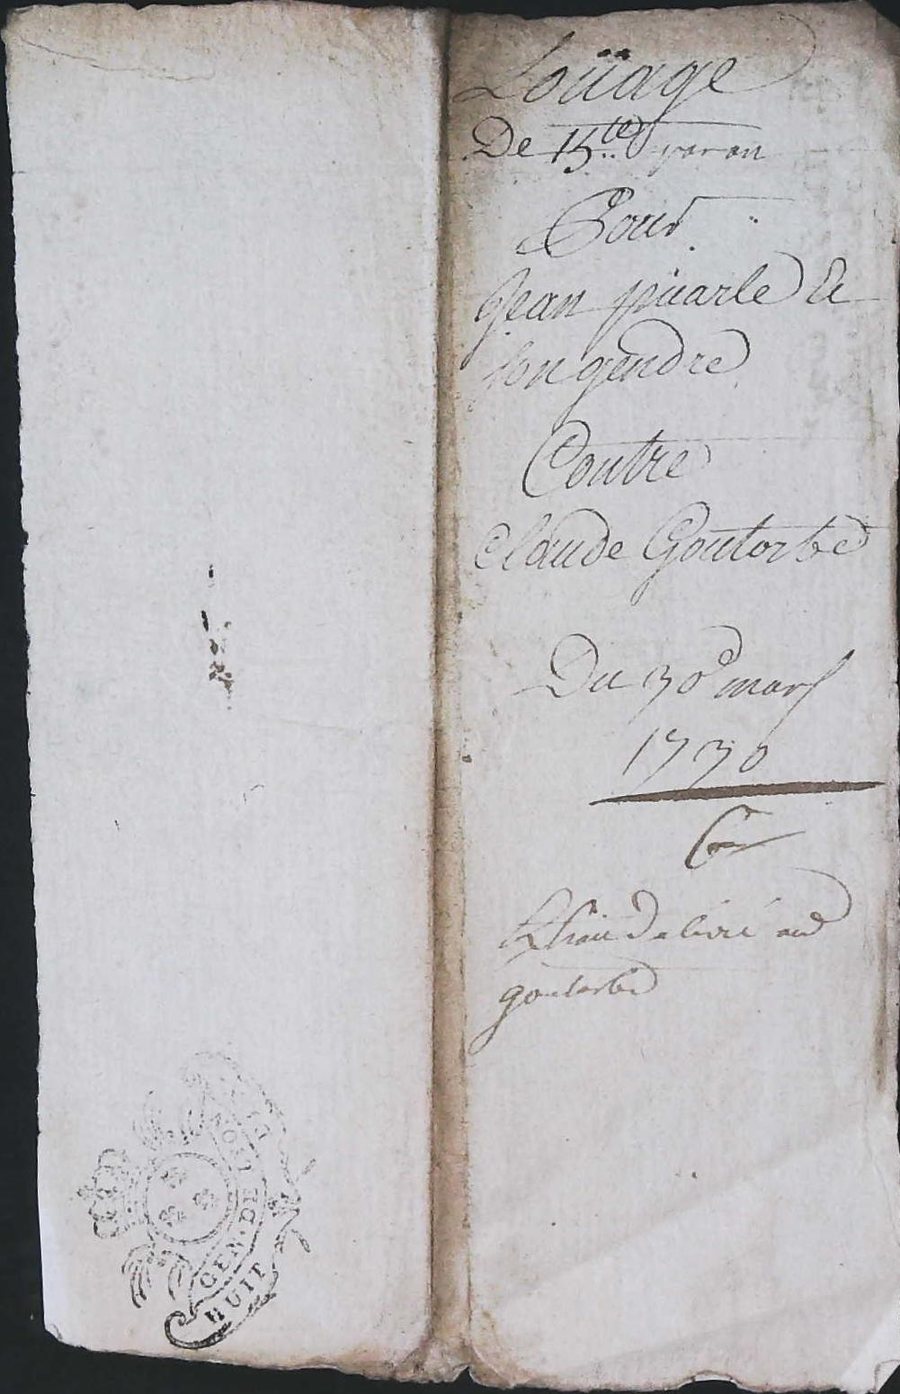 Loüage
De 15ᵗᵉ par an
Pour
Jean piiarle &
son gendre
Contre
claude Goutorbe
Du 30ᵉ mars
1730
delivré aud
goutorbe
GEN. DE LION
HUIT